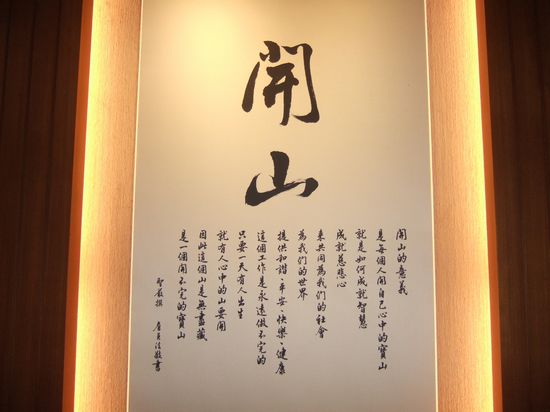 開山
開山的意義
是每個人開自己心中的寶山
就是如何成就智慧
成就慈悲心
來共同為我們的社會
為我們的世界
提供和諧、平安、快樂、健康
這個工作是永遠做不完的
只要一天有人出生
就有人心中的山要開
因此這個山是無盡藏
是一個開不完的寶山
聖嚴撰